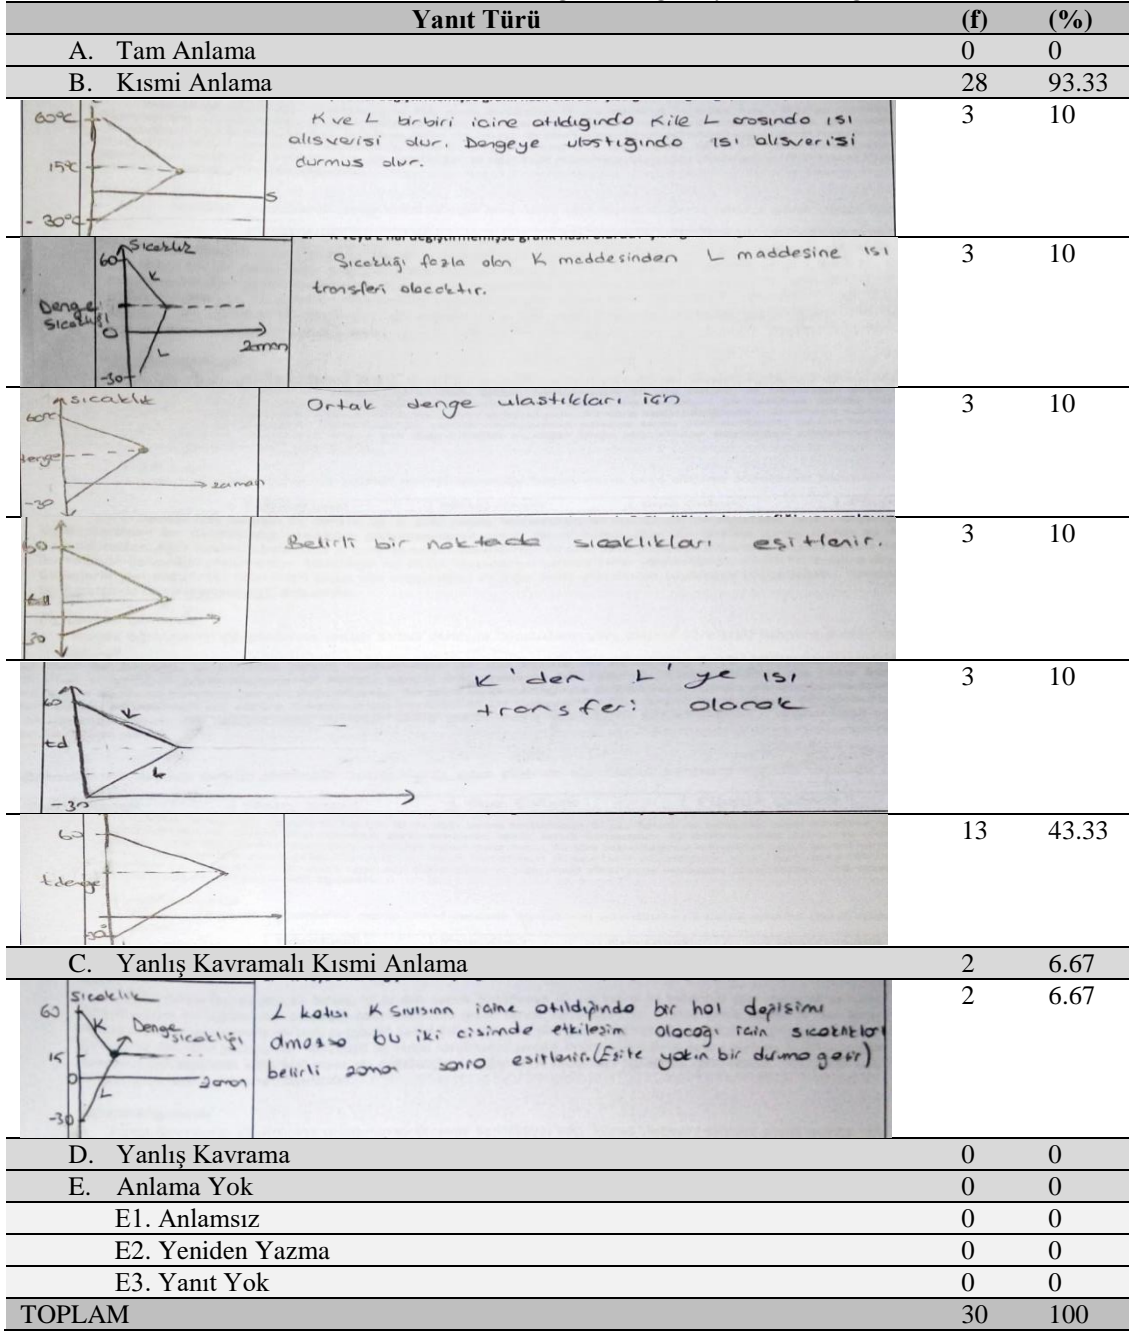 Yanıt Türü (f) (%)
A. Tam Anlama 0 0
B. Kısmi Anlama 28 93.33
60°C
15°C
-30°C
S
K ve L birbiri icine atıldıgında K ile L arasında ısı
alısverisi olur. Dengeye ulastıgında ısı alısverisi
durmus olur.
3 10
Sıcaklık
60
K
Denge
Sıcaklığı
0
zaman
L
-30
Sıcaklığı fazla olan K maddesinden L maddesine ısı
transferi olacaktır.
3 10
sıcaklık
60°C
denge
zaman
-30
Ortak denge ulastıkları icin
3 10
30
Belirli bir noktada sıcaklıkları esitlenir.
3 10
60
K
td
L
-30
K'den L'ye ısı
transferi olacak
3 10
60
tdenge
-30
13 43.33
C. Yanlış Kavramalı Kısmi Anlama 2 6.67
Sıcaklık
60
K
Denge
sıcaklığı
15
0
zaman
L
-30
L katısı K sıvısının icine atıldığında bir hal değisimi
olmassa bu iki cisimde etkilesim olacağı icin sıcaklıkları
belirli zaman sonra esitlenir. (Esite yakın bir duruma gelir)
2 6.67
D. Yanlış Kavrama 0 0
E. Anlama Yok 0 0
E1. Anlamsız 0 0
E2. Yeniden Yazma 0 0
E3. Yanıt Yok 0 0
TOPLAM 30 100